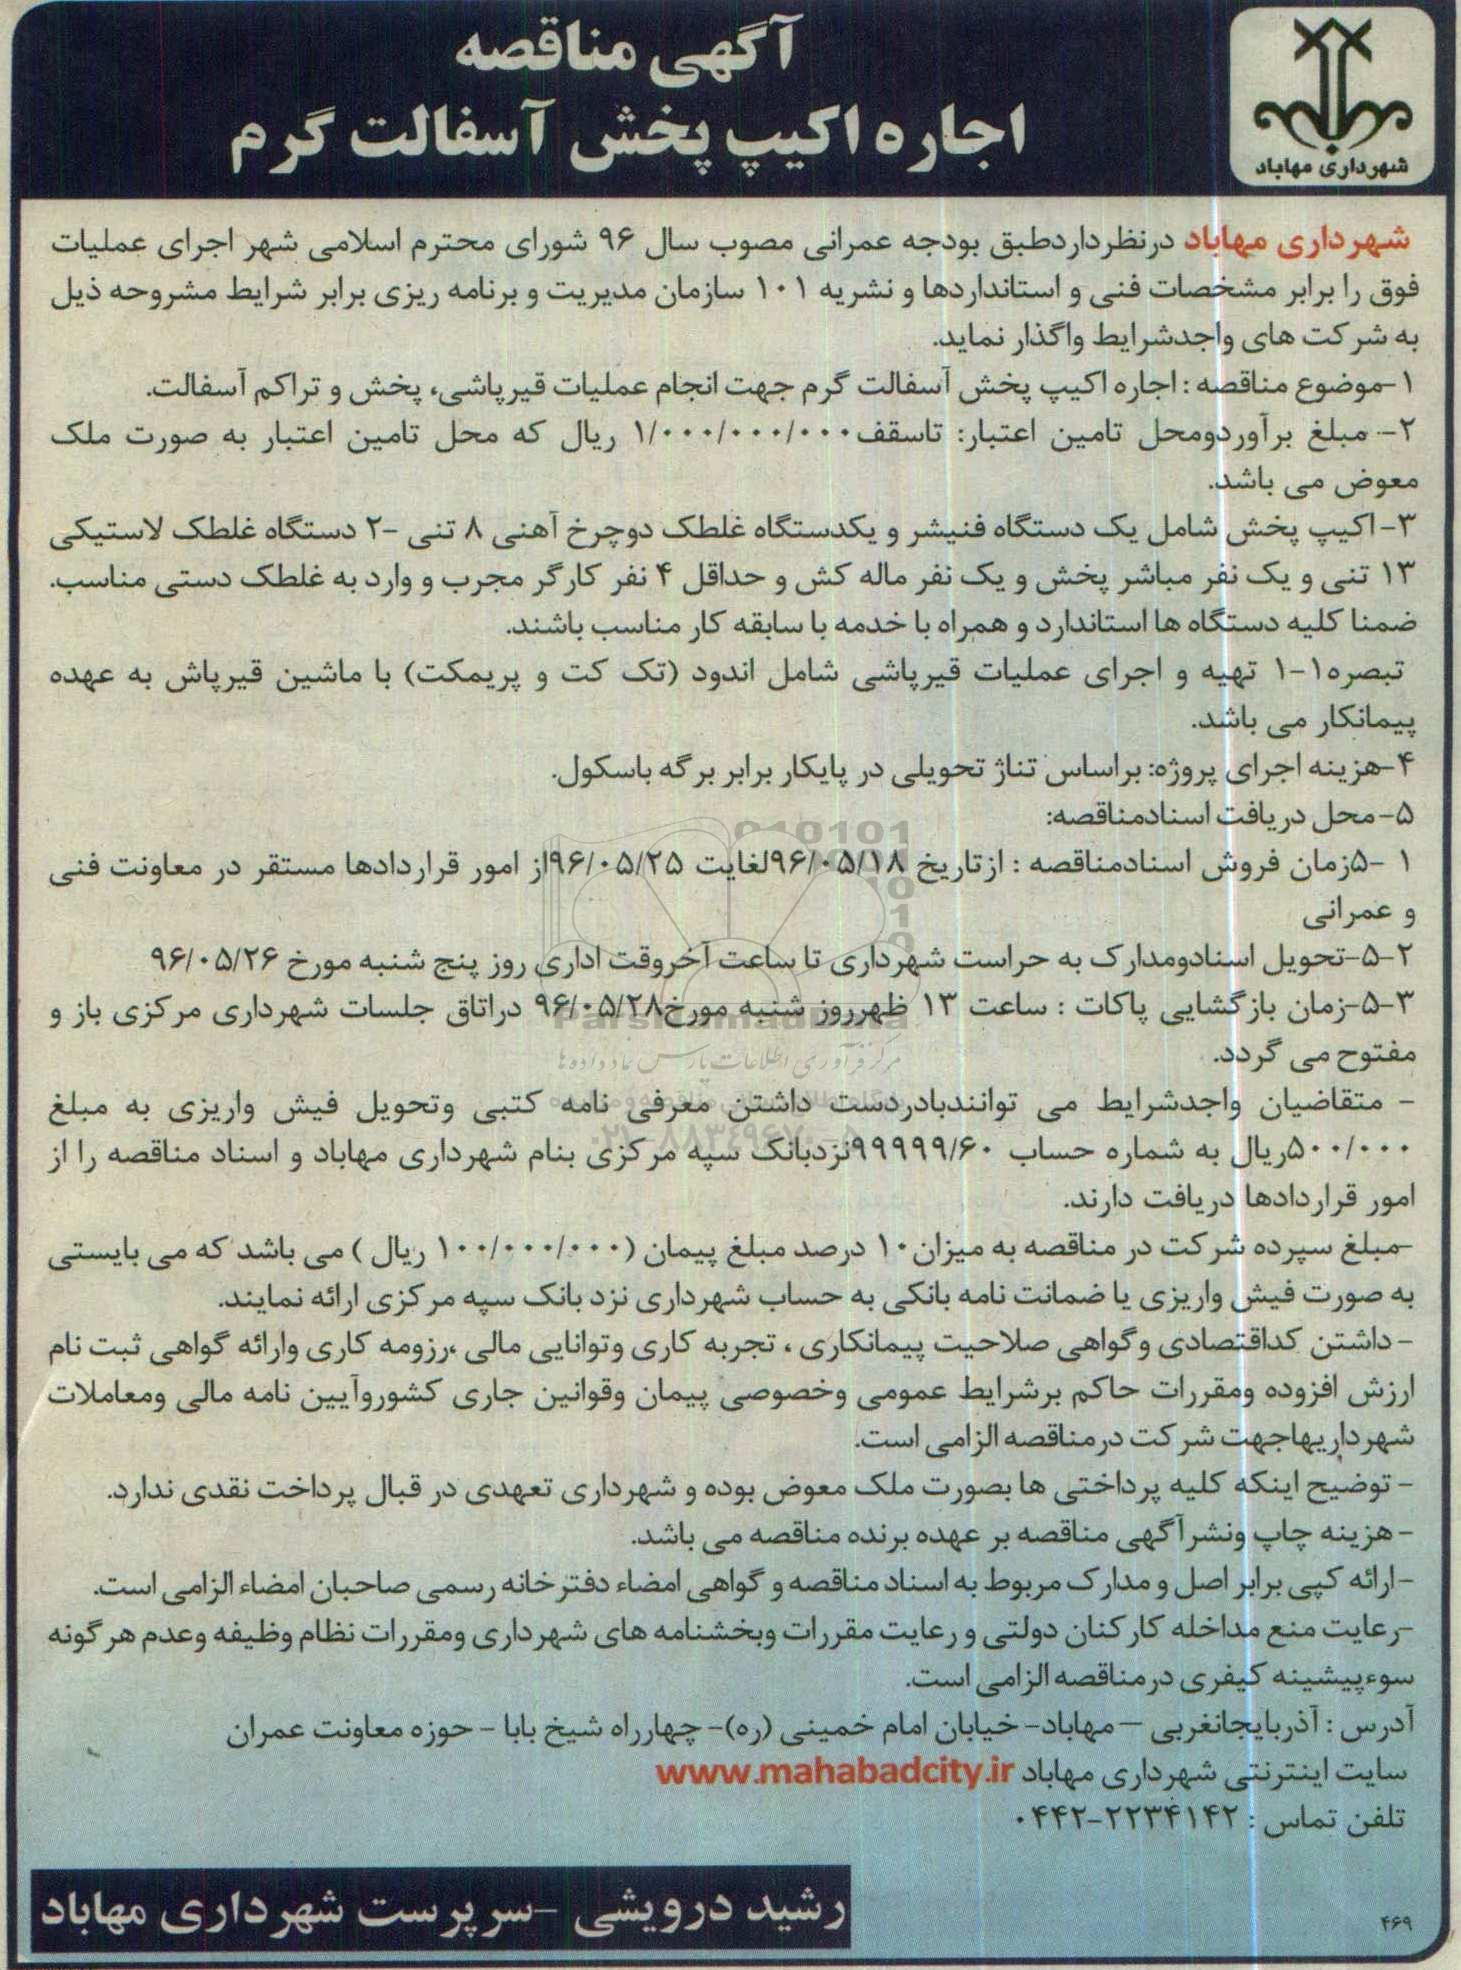 آگهی مناقصه
اجاره اکیپ پخش آسفالت گرم
شهرداری مهاباد
شهرداری مهاباد درنظرداردطبق بودجه عمرانی مصوب سال ۹۶ شورای محترم اسلامی شهر اجرای عملیات
فوق را برابر مشخصات فنی و استانداردها و نشریه ۱۰۱ سازمان مدیریت و برنامه ریزی برابر شرایط مشروحه ذیل
به شرکت های واجدشرایط واگذار نماید.
۱-موضوع مناقصه : اجاره اکیپ پخش آسفالت گرم جهت انجام عملیات قیرپاشی، پخش و تراکم آسفالت.
۲- مبلغ برآوردومحل تامین اعتبار: تاسقف۱/۰۰۰/۰۰۰/۰۰۰ ریال که محل تامین اعتبار به صورت ملک
معوض می باشد.
۳-اکیپ پخش شامل یک دستگاه فنیشر و یکدستگاه غلطک دوچرخ آهنی ۸ تنی -۲ دستگاه غلطک لاستیکی
۱۳ تنی و یک نفر مباشر پخش و یک نفر ماله کش و حداقل ۴ نفر کارگر مجرب و وارد به غلطک دستی مناسب.
ضمنا کلیه دستگاه ها استاندارد و همراه با خدمه با سابقه کار مناسب باشند.
تبصره۱-۱ تهیه و اجرای عملیات قیرپاشی شامل اندود (تک کت و پریمکت) با ماشین قیرپاش به عهده
پیمانکار می باشد.
۴-هزینه اجرای پروژه: براساس تناژ تحویلی در پایکار برابر برگه باسکول.
۵-محل دریافت اسنادمناقصه:
۱ -۵زمان فروش اسنادمناقصه : ازتاریخ ۹۶/۰۵/۱۸لغایت ۹۶/۰۵/۲۵از امور قراردادها مستقر در معاونت فنی
و عمرانی
۵-۲-تحویل اسنادومدارک به حراست شهرداری تا ساعت آخروقت اداری روز پنج شنبه مورخ ۹۶/۰۵/۲۶
۵-۳-زمان بازگشایی پاکات : ساعت ۱۳ ظهرروز شنبه مورخ۹۶/۰۵/۲۸ دراتاق جلسات شهرداری مرکزی باز و
مفتوح می گردد.
مرکز فرآوری اطلاعات پارس نماد داده ها
- متقاضیان واجدشرایط می توانندبادردست داشتن معرفی نامه کتبی وتحویل فیش واریزی به مبلغ
۵۰۰/۰۰۰ریال به شماره حساب ۹۹۹۹۹/۶۰نزدبانک سپه مرکزی بنام شهرداری مهاباد و اسناد مناقصه را از
امور قراردادها دریافت دارند.
-مبلغ سپرده شرکت در مناقصه به میزان۱۰ درصد مبلغ پیمان (۱۰۰/۰۰۰/۰۰۰ ریال ) می باشد که می بایستی
به صورت فیش واریزی یا ضمانت نامه بانکی به حساب شهرداری نزد بانک سپه مرکزی ارائه نمایند.
-داشتن کداقتصادی وگواهی صلاحیت پیمانکاری ، تجربه کاری وتوانایی مالی ،رزومه کاری وارائه گواهی ثبت نام
ارزش افزوده ومقررات حاکم برشرایط عمومی وخصوصی پیمان وقوانین جاری کشوروآیین نامه مالی ومعاملات
شهرداریهاجهت شرکت درمناقصه الزامی است.
- توضیح اینکه کلیه پرداختی ها بصورت ملک معوض بوده و شهرداری تعهدی در قبال پرداخت نقدی ندارد.
-هزینه چاپ ونشرآگهی مناقصه بر عهده برنده مناقصه می باشد.
-ارائه کپی برابر اصل و مدارک مربوط به اسناد مناقصه و گواهی امضاء دفترخانه رسمی صاحبان امضاء الزامی است.
-رعایت منع مداخله کارکنان دولتی و رعایت مقررات وبخشنامه های شهرداری ومقررات نظام وظیفه وعدم هرگونه
سوءپیشینه کیفری درمناقصه الزامی است.
آدرس : آذربایجانغربی – مهاباد- خیابان امام خمینی (ره)- چهارراه شیخ بابا - حوزه معاونت عمران
سایت اینترنتی شهرداری مهاباد www.mahabadcity.ir
تلفن تماس : ۰۴۴۲-۲۲۳۴۱۴۲
رشید درویشی -سرپرست شهرداری مهاباد
۴۶۹